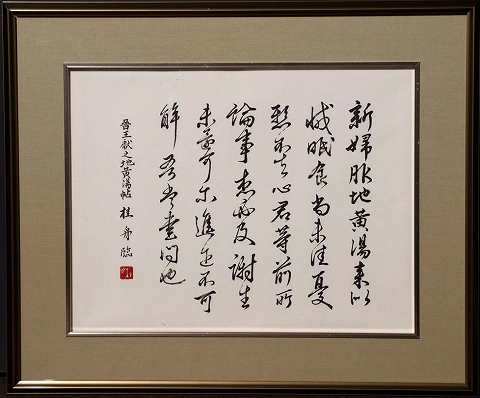 新婦服地黄湯来似
減眠食尚未佳憂
懸不去心君等前所
論事想必及謝生
未還可尓進退不可
解吾當書問也
晉王献之地黄湯帖 桂舟臨